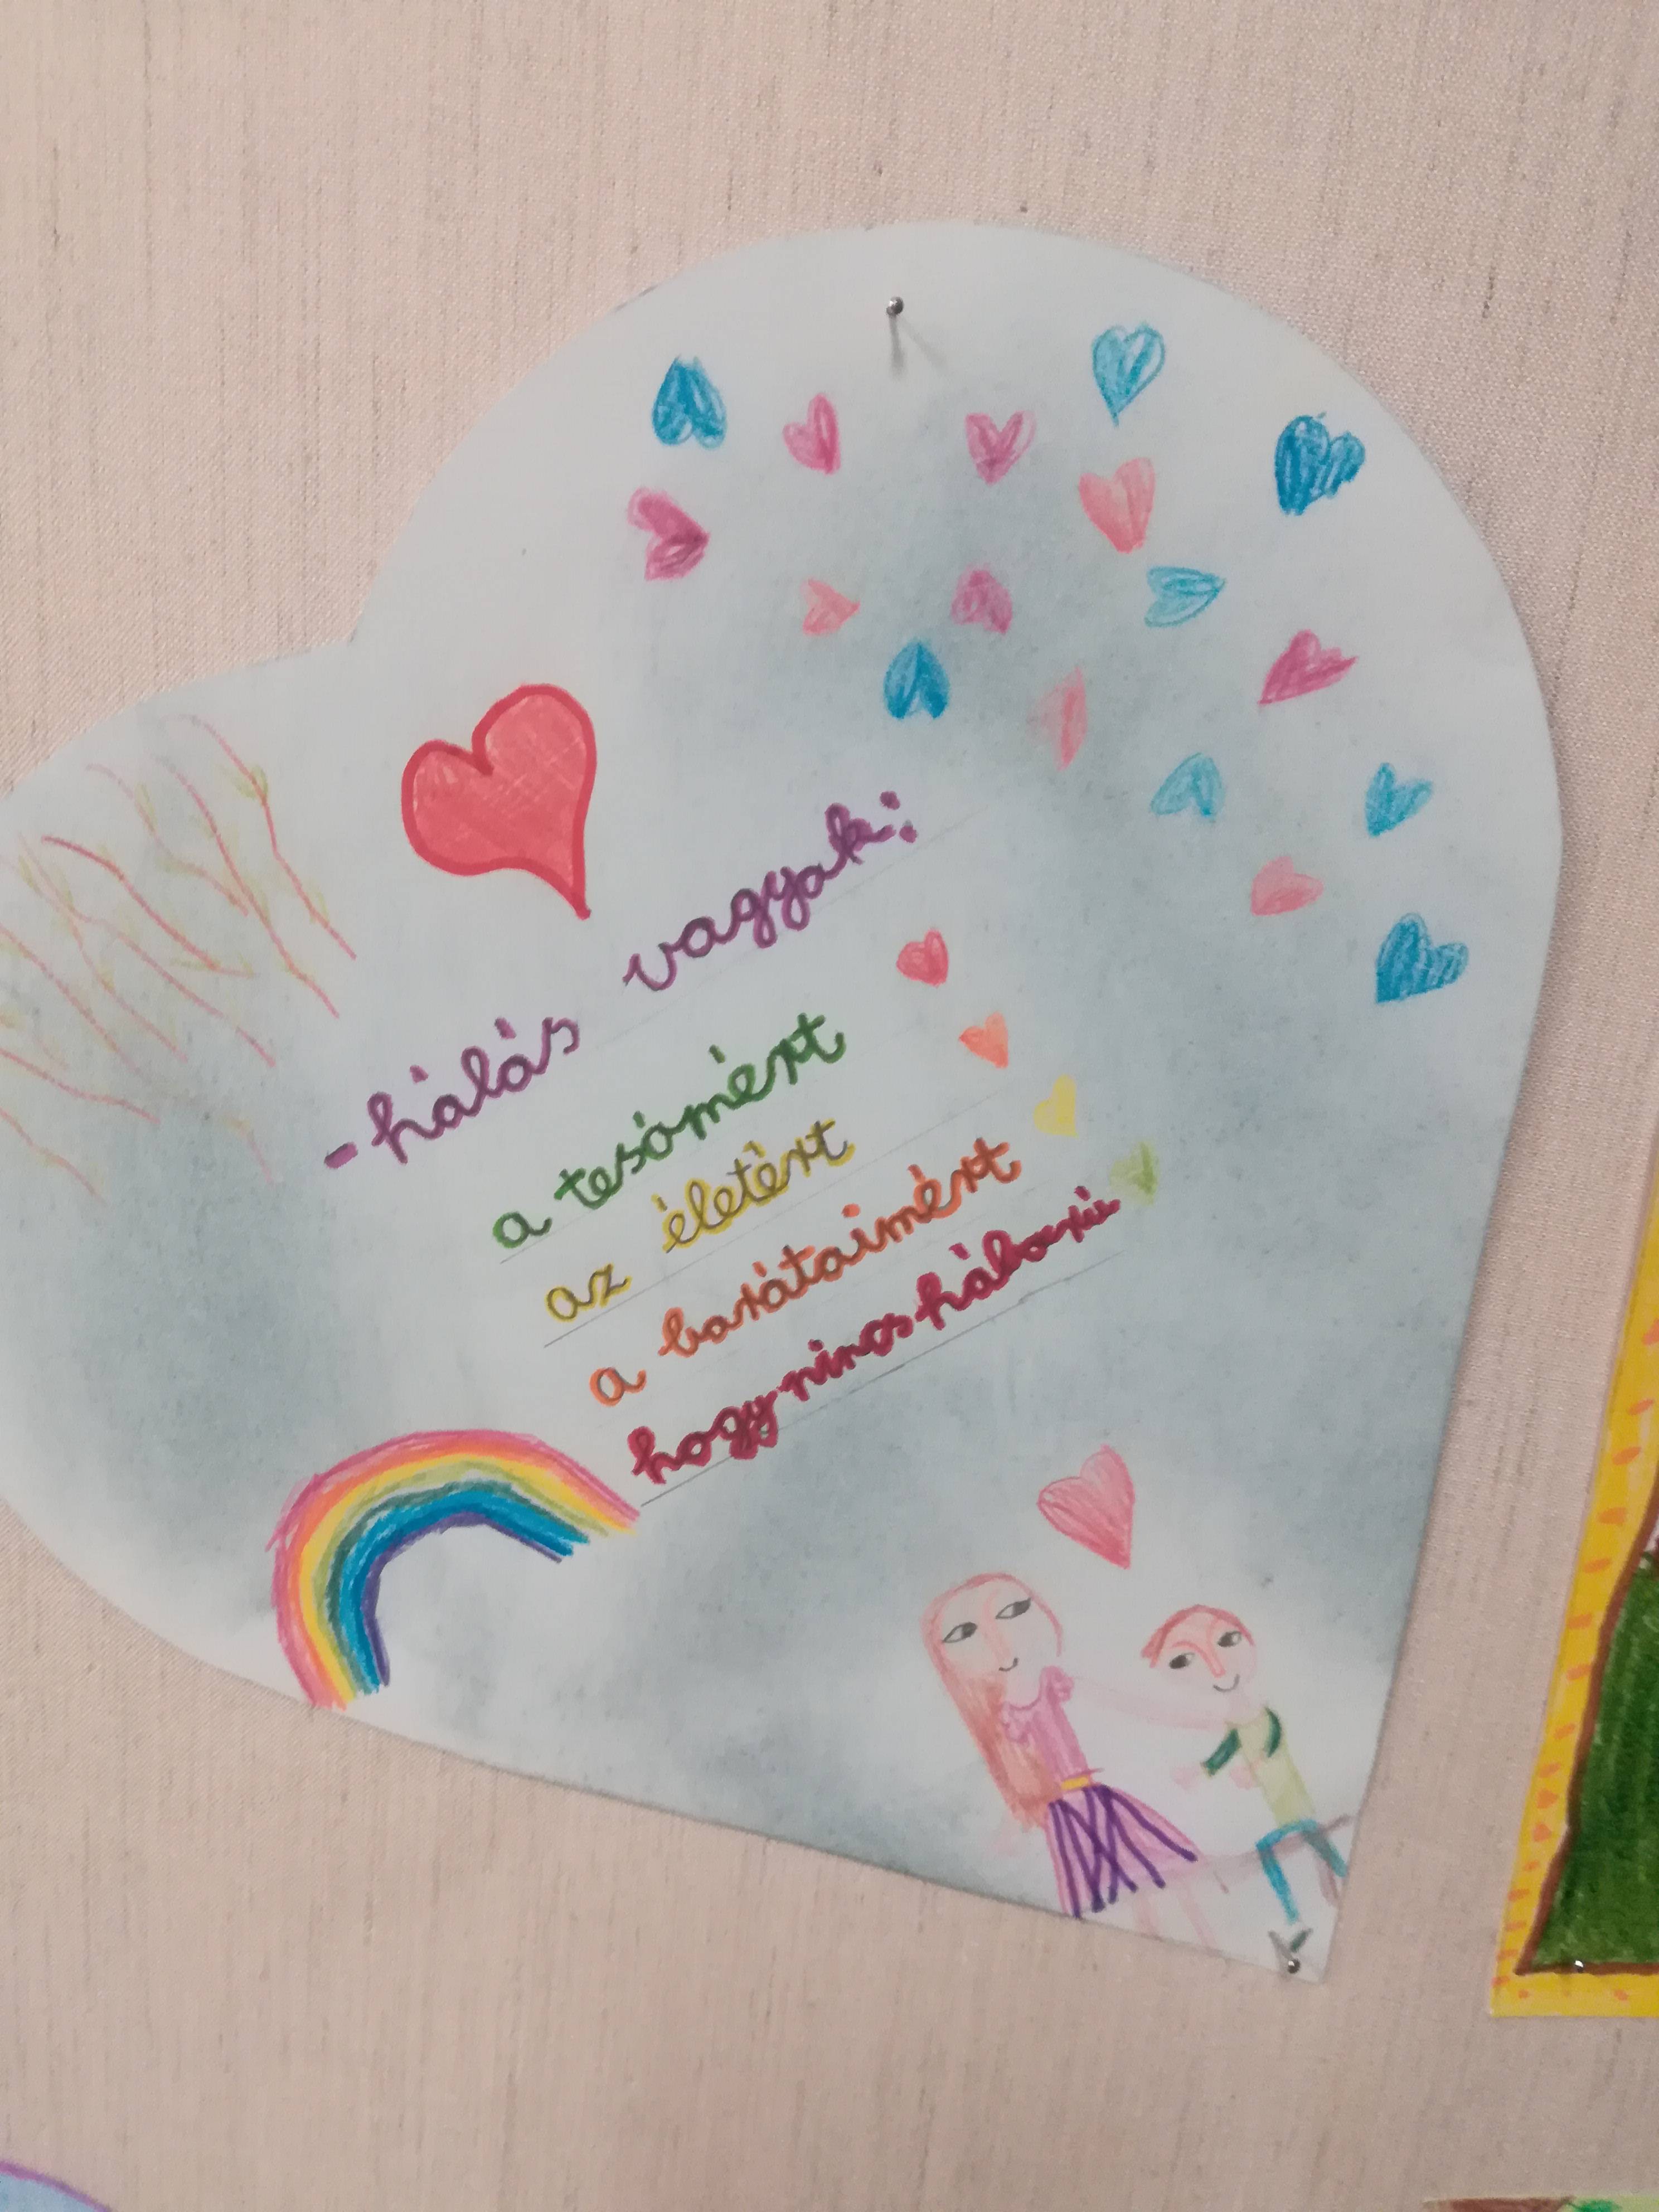 -hálás vagyok:
a tesómért
az életért
a barátaimért
hogy nincs háború